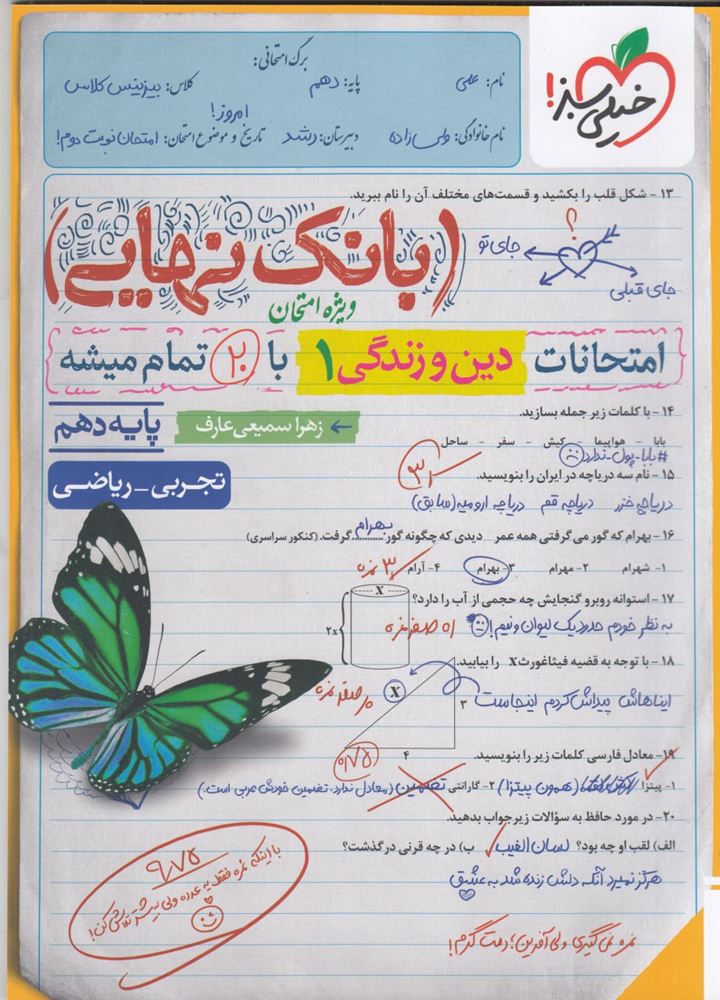 برگ امتحانی:
نام: علی
پایه: دهم
کلاس: بیزینس کلاس
نام خانوادگی: ولی زاده
دبیرستان: رشد
تاریخ و موضوع امتحان: امروز! امتحان نوبت دوم!
خیلی سبز!
۱۳ - شکل قلب را بکشید و قسمت‌های مختلف آن را نام ببرید.
؟
جای تو
جای قبلی
(بانک نهایی)
ویژه امتحان
امتحانات دین و زندگی ۱ با ۲۰ تمام میشه
پایه دهم
زهرا سمیعی عارف
تجربی - ریاضی
۱۴ - با کلمات زیر جمله بسازید.
بابا - هواپیما - کیش - سفر - ساحل
#بابا-پول-ندارد
۱۵ - نام سه دریاچه در ایران را بنویسید.
دریاچه خزر دریاچه قم دریاچه ارومیه (سابق)
۱۶ - بهرام که گور می‌گرفتی همه عمر دیدی که چگونه گور بهرام گرفت. (کنکور سراسری)
۱- شهرام ۲- مهرام ۳- بهرام ۴- آرام
۱۷ - استوانه روبرو گنجایش چه حجمی از آب را دارد؟
x
2x
به نظر خودم حدود یک لیوان و نیم!
۱۸ - با توجه به قضیه فیثاغورث x را بیابید.
ایناهاش پیداش کردم اینجاست
x
۳
۴
۰/۷۵
۱۹ - معادل فارسی کلمات زیر را بنویسید.
۱- پیتزا (همون پیتزا) ۲- گارانتی تضمین (معادل ندارد. تضمین خودش عربی است.)
۲۰ - در مورد حافظ به سؤالات زیر جواب بدهید.
الف) لقب او چه بود؟ لسان الغیب ب) در چه قرنی درگذشت؟
هرگز نمیرد آنکه دلش زنده شد به عشق
۹/۷۵
با اینکه نمره فقط یه عدده ولی بیشتر تلاش کن!
نمره نمی‌گیری ولی آفرین؛ دمت گرم!